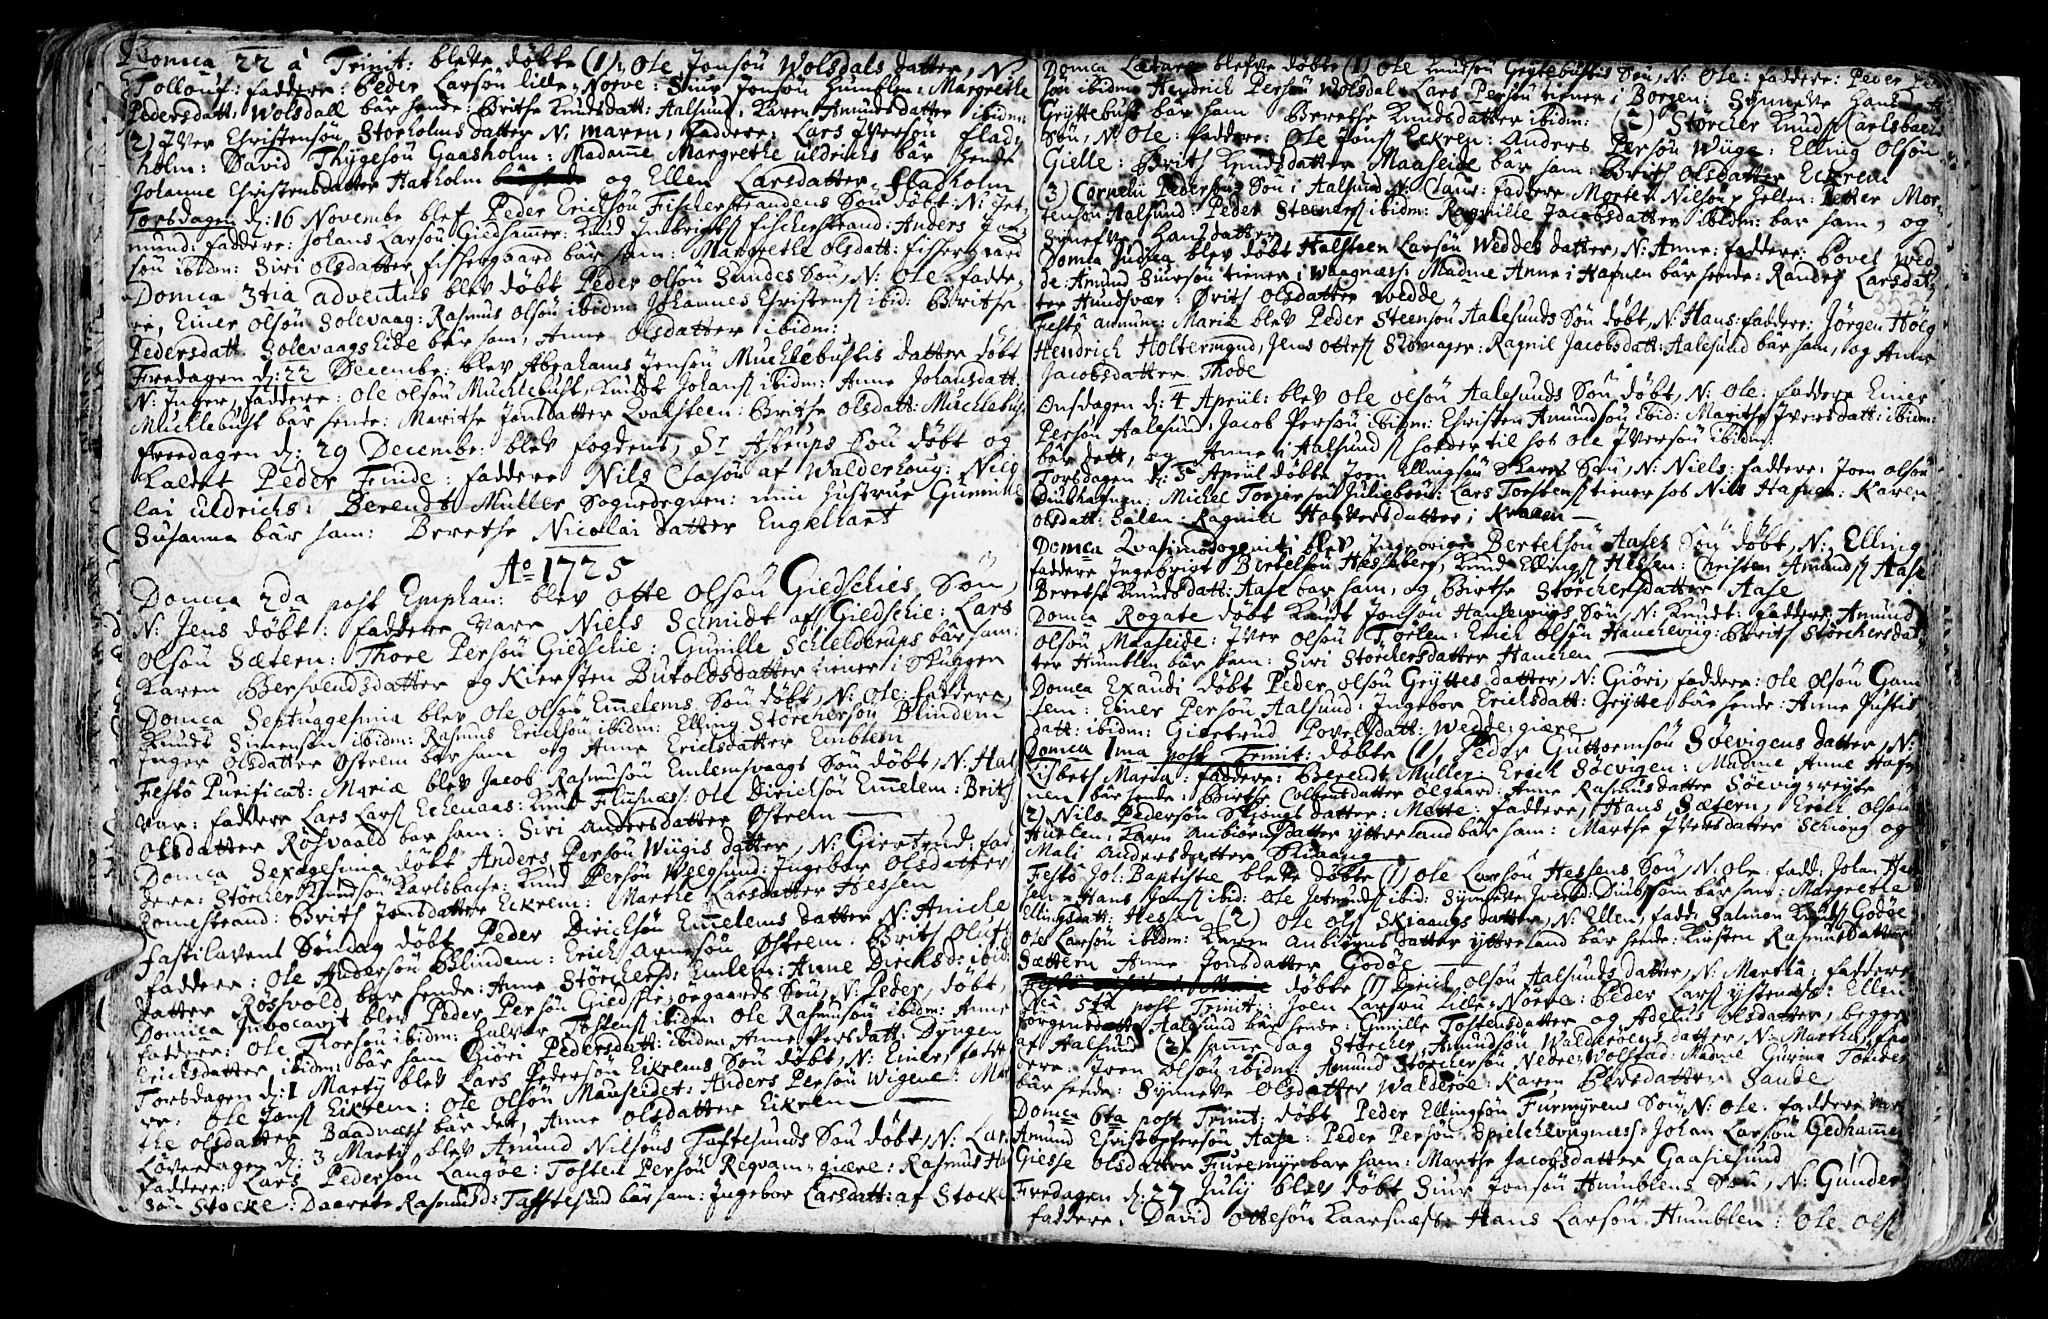 Domca 22 à Trinit: bleve döbte (1) Ole Jonsön Wolsdals datter, N:
Tollouf: faddere: Peder Larsön lille Norve: Siur Jonsön Humblen: Margrethe
Pedersdatt: Wolsdall bär hende: Brithe Knudsdatt: Aalsund, Karen Amundsdatter ibidm:
2) Iver Christensön Storholms datter N: Maren, faddere: Lars Iversön flad,
holm: David Thygesön Gaasholm: Madame Margrethe Uldrichs bär hende
Johanne Christensdatter Hatholm og Ellen Larsdatter fladholm
Torsdagen d: 16 Novembe blef Peder Erichsön Fischerstrandens Sön döbt N: Jet,
mund: faddere: Johans Larsön Giedhamer: Knud Ingbrigts fischerstrand: Anders Jon
sön ibidm: Siri Olsdatter fissergaard bär ham: Margrethe Olsdatt: fissergaard
Domca 3tia adventus blev döbt Peder Olsön Sandes Sön, N: Ole: fadde,
re, Einer Olsön Solevaag: Rasmus Olsön ibidm Johannes Christens ibid: Brithe
Pedersdatt Solevaagseide bär ham, Anne Olsdatter ibidm:
Fredagen d: 22 Decembe: blev Abrahams Jensön Mucklebustis datter döbt
N: Inger, faddere: Ole Olsön Mucklebust, Knudt Johans ibidm: Anne Johansdatt
Mucklebust bär hende: Marithe Jonsdatter Qvalsteen: Brithe Olsdatt: Mucklebust
Fredagen d: 29 Decembe: blev fogdens, Sr Astrups Sön döbt og
kaldet Peder Finde: faddere Nils Clasön af Walderhoug: Nico
lai Uldrichs: Berendt Müller Sognedegnen: min hustrue Gunnille
Susanna bär ham: Berethe Nicolai datter Engelhart
Ao 1725
Domca 2da post Epiphan: blev Otte Olsön Giedschies Sön,
N: Jens döbt: faddere vare Niels Schmidt af Giedschie: Lars
Olsön Sætern: Thore Persön Giedschie: Gunille Schielderups bär ham:
Karen Bersvendsdatter og Kiersten Butoldsdatter tiener i Skuggen
Domca Septuagesima blev Ole Olsön Emelems Sön döbt, N: Ole: faddere,
Knudt Simensön ibidm: Rasmus Erichsön ibidm: Elling Störchersön Blindem
Inger Olsdatter Ostrem bär ham og Anne Erichsdatter Emblem
Festo Purificat: Mariæ blev Jacob Rasmusön Emlemsvaags Sön döbt, N: Hal
var: faddere Lars Lars Eckenaas: Knud Fliisnæss: Ole Dirichsön Emelem: Brith
Olsdatter Rösvaald bar ham: Siri Andersdatter Ostrem
Domca Sexagesima döbt Anders Persön Wiigis datter, N: Giertrud: fad,
dere: Störcher Knudsön Karlsbache: Knud Persön Wegsund: Ingebor Olsdatter
Romestrand: Brith Jonsdatter Eckrem: Marthe Larsdatter Hessen
Fastelavens Söndag döbt Peder Dirichsön Emelems datter N: Aniche
faddere: Ole Andersön Blindem: Erich Arnesön Ostrem: Brith Oluf,
datter Rösvold bar hende: Anne Störchersd: Emlem: Anne Dirchsd: ibid:
Domca Invocavit blev Peder Persön Giedschie öegaards Sön, N: Peder, döbt,
faddere: Ole Torsön ibidm: Halvor Tostens ibidm: Ole Rasmusön ibidm: Anne
Erichsdatter ibidm: bär ham Giöri Pedersdatt: ibidm Anne Persdatt: Dyngen
Torsdagen d: 1 Martij blev Lars Pedersön Eikrems Sön döbt, N: Einer, fadde
re: Ole Jons Eikrem: Ole Olsön Mauseidet: Anders Persön Wigene: Mar
the Olsdatter Baadnæss bär det, Anne Olsdatter Eikrem
Löverdagen d: 3 Martij blev Amund Nilsöns Taftesunds Sön döbt, N: Lars
faddere: Lars Pedersön Langöe: Tosten Persön Reqvam=giære: Rasmus Han
sön Stocke: Daarete Rasmusd: Tafftesund bär ham: Ingebor Larsdatt: af Stocke
Domca Lætare blefve döbte (1) Ole Knudsön Grytebustis Sön, N: Ole: faddere: Peder
sön ibidm: Hendrich Persön Wolsdal: Lars Persön tiener i Borgen: Synneve Hans
Gryttebust bär ham Berethe Knudsdatter ibidm: (2) Störcher Knuds Carlsbach
Sön, N: Ole: faddere: Ole Jons Eckren: Anders Persön Wiige: Elling Olsön
Gielle: Brith Knudsdatter Maaseide bär ham: Brith Olsdatter Eckrem
3) Corneli Pedersöns Sön i Aalsund N: Claus: faddere Morten Nilsön Hellen: Petter Mor,
tensön Aalsund: Peder Steeners ibidm: Ragnille Jacobsdatter ibidm: bar ham, og
Synefve Hansdatter
Domca Judica blev döbt Halsteen Larsön Weddes datter, N: Anne: faddere: Povel Wed,
de: Amund Siursön tiener i Waagnæss: Madme Anne i Hafnen bär hende: Randej Larsdat,
ter Hundsvær: Örith Olsdatter Wedde
Festo annunc: Mariæ blev Peder Steensön Aalesunds Sön döbt, N: Hans: faddere: Jörgen Hölg
Hendrich Holtermand, Jens Ottes Skomager: Ragnil Jacobsdatt: Aalesund bär ham, og Anne
Jacobsdatter Thode
Onsdagen d: 4 April: blev Ole Olsön Aalesunds Sön döbt, N: Ole: faddere Einer
Persön Aalsund, Jacob Persön ibidm: Christen Amundsön ibid: Marithe Iversdatt: ibidm:
bär dett, og Anne i Aalsund holder til hos Ole Iversön ibidm:
Torsdagen d: 5 April döbte Joen Ellingsön Skares Sön, N: Niels: faddere: Joen Olsön
Buehafnen: Michel Torgersön Julieböen: Lars Torstens tiener hos Nils Hafnen: Karen
Olsdatt: Salen: Ragnill Halversdatter i Kraaen
Domca Qvasimodogeniti blev Ingebrigt Bertelsön Aases Sön döbt, N: Elling
faddere Ingebrigt Bertelsön Hesseberg, Knud Ellings Hessen: Christen Amunds Aase
Berethe Knudsdatt: Aase bar ham, og Birthe Störchersdatter Aase
Domca Rogate döbt Knudt Jonsön Hanckewiigs Sön, N: Knudt: faddere: Amund
Olsön Maaseide: Iver Olsön Torlen: Erich Olsön Hanckewiig: Brith Störchersdat,
ter Humblen bär ham: Siri Störchersdatter Hancken
Domca Exaudi döbt Peder Olsön Gryttes datter, N: Giöri, faddere: Ole Olsön Gam
lem: Einer Persön Aalsund: Ingebor Erichsdatt: Grytte bär hende: Anne Justis
datt: ibidm: Giertrud Povelsdatt: Wedde=giære
Domca 1ma post Trinit: döbte (1) Peder Guttormsön Söevigens datter, N:
Lisbeth Maria: faddere: Berendt Müller: Erich Söevigen: Madme Anne Haf
nen bär hende: Birthe Colbensdatter Oegaard: Anne Rasmusdatter Söevig=reyte
2) Nils Pedersön Skongs datter: Mætte: faddere, Hans Sætern, Erich Olsön
Huelen: Karn Anbiörnsdatter Yttreland bär ham: Marthe Iversdatter Schiong og
Mali Andersdatter Skiaang
Festo Joh: Baptistæ bleve döbte (1) Ole Larsön Hessens Sön, N: Ole: fadd: Johan Hes
sen, Hans Jons ibid: Ole Jetmunds ibid: Synneve Iversd: Duib, som bär ham: Margrethe
Ellingsdatt: Hessen (2) Ole Ols Skiaangs datter, N: Ellen, fadd: Salmon Knuds Godöe
Ole Larsön ibidm: Karen Anbiörns datter Yttreland bär hende: Kirsten Rasmusdatter
Sættern Anne Jonsdatter Godöe
döbte (1) Dirich Olsön Aalsunds datter, N: Martha: faddere
Dca 5ta post Trinit: Joen Larsön Lille Nörve: Peder Lars Ystenæss: Ellen
Jörgensdatter Aalsund bär hende: Gunille Tostensdatter og Adelus Olsdatter, begge
af Aalsund (2) samme dag Störcher Amundsön Walderöens datter, N: Martha, fad
dere: Joen Olsön ibidm: Amund Störchersön Nedre=Wolstad: Madme Gurina Tönder
bär hende: Synneve Olsdatter Walderöe: Karen Persdatter Sande
Domca 6ta post Trinit: döbt Peder Ellingsön Furmyrens Sön, N: Ole: faddere vare
Amund Christophersön Aase: Peder Persön Spielchevignæss: Johan Larsön Gedhamme
Giesse Olsdatter Furemyr bar ham: Marthe Jacobsdatter Gaasiesund
Fredagen d: 27 July blev döbt Siur Jonsön Humblens Sön, N: Gunder
faddere: David Ottesön Kaarsnæss: Hans Larsön Humblen: Ole Ols